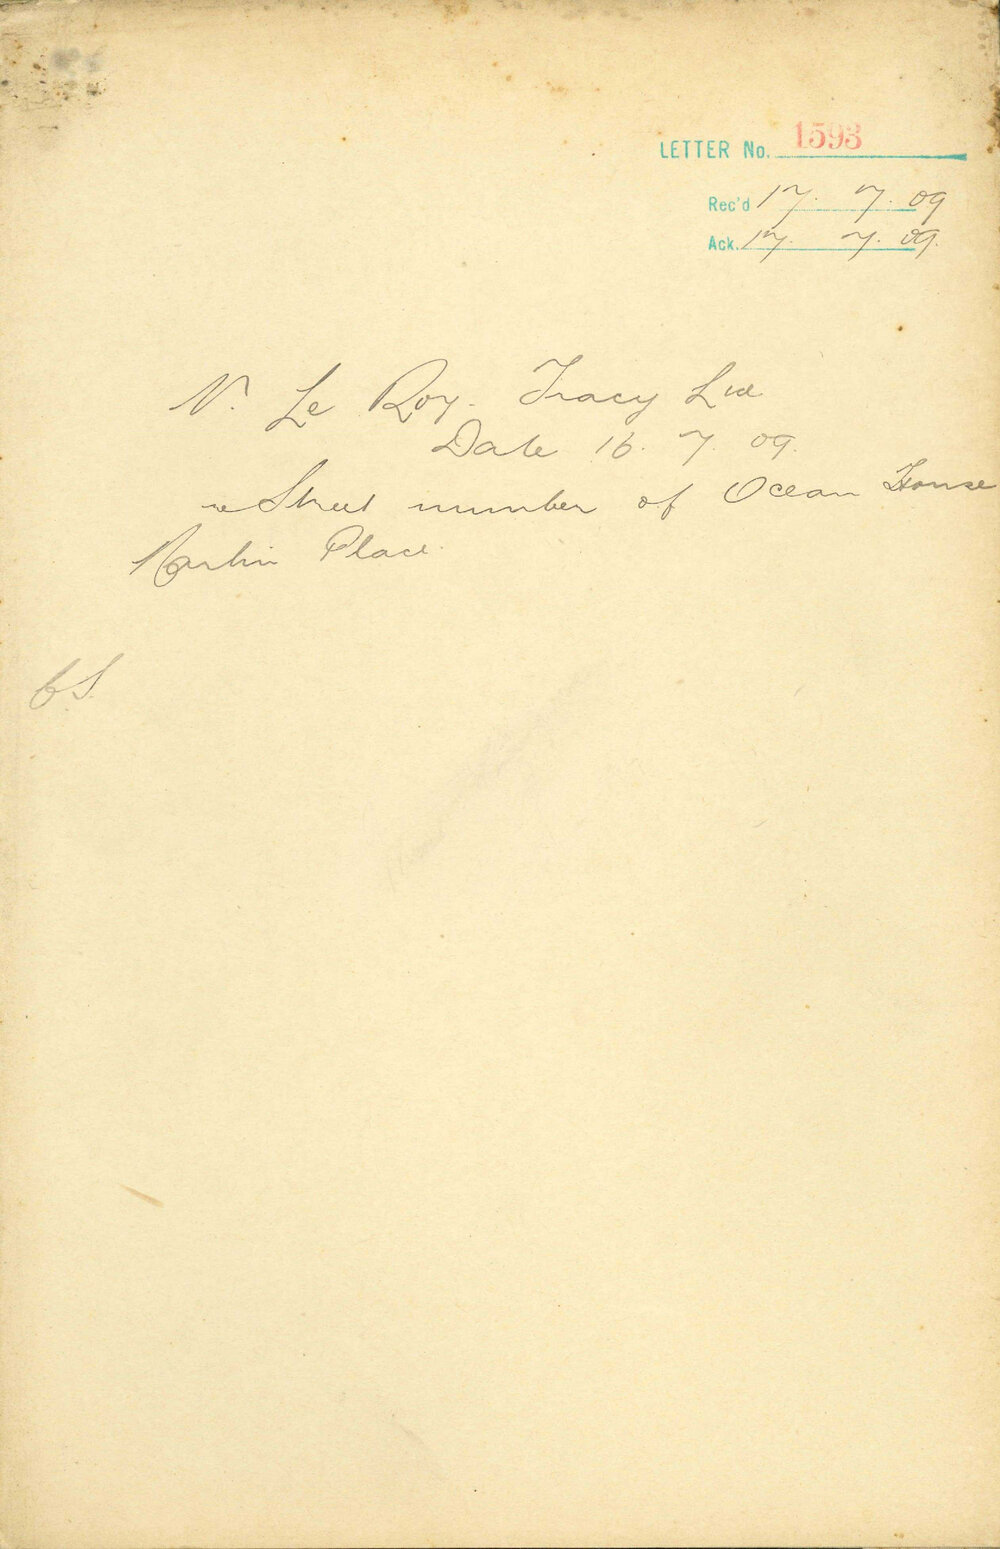 LETTER No. 1593
Rec'd 17. 7. 09
Ack. 17. 7. 09.
N. Le Roy. Tracy Ltd
Date 16. 7. 09.
re Street number of Ocean House
Martin Place.